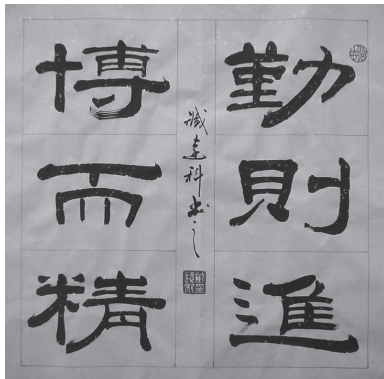 勤則進
博而精
臧建科書之